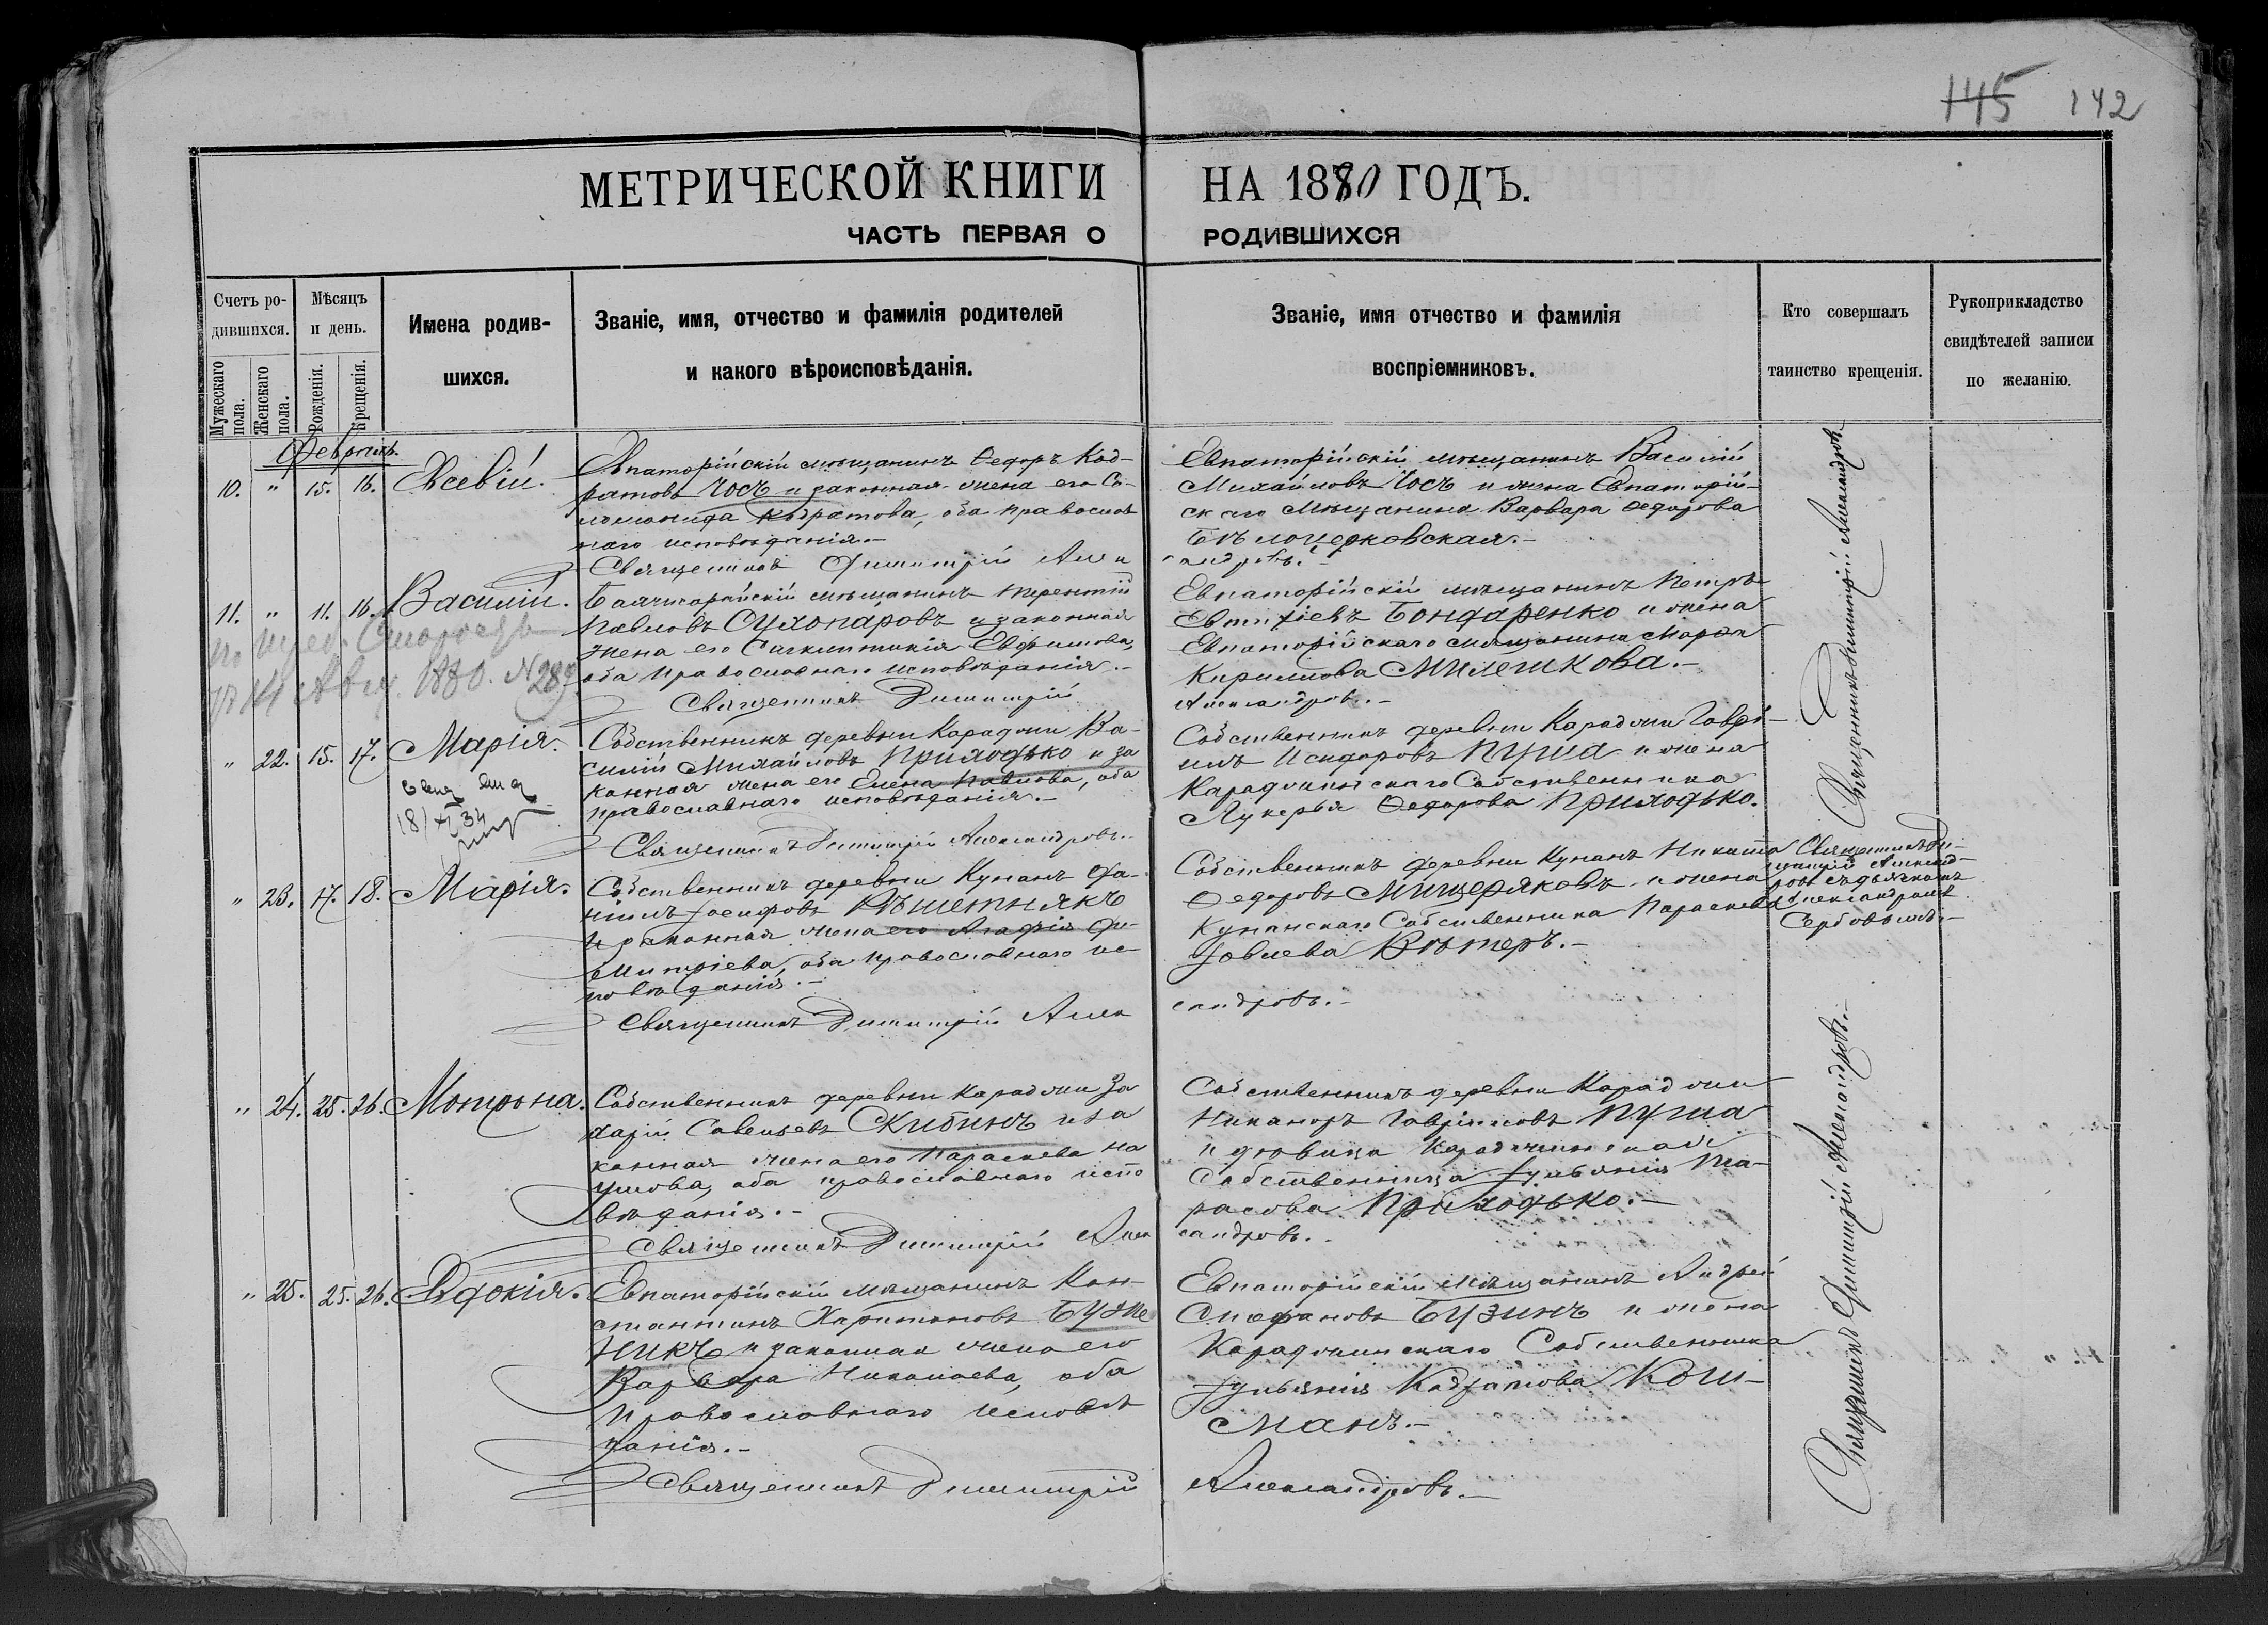 145 142
МЕТРИЧЕСКОЙ КНИГИ НА 1880 ГОДЪ.
ЧАСТЬ ПЕРВАЯ О РОДИВШИХСЯ
Счетъ ро-
дившихся.
Мужескаго пола.
Женскаго пола.
Мѣсяцъ
и день.
Рожденія.
Крещенія.
Имена родив-
шихся.
Званіе, имя, отчество и фамилія родителей
и какого вѣроисповѣданія.
Званіе, имя отчество и фамилія
воспріемниковъ.
Кто совершалъ
таинство крещенія.
Рукоприкладство
свидѣтелей записи
по желанію.
Февраль.
10. " 15. 16. Евсевій.
Евпаторійскій мѣщанинъ Ѳедоръ Код-
ратовъ Чосъ и законная жена его Со-
ломонида Кодратова, оба православ
наго исповѣданія.-
Священникъ Димитрій Алек
Евпаторійскій мѣщанинъ Василій
Михайловъ Чосъ и жена Евпаторій-
скаго мѣщанина Варвара Ѳедорова
Бѣлоцерковская.-
сандровъ.-
11. " 11. 16. Василій.
Павловъ Сухопаровъ и законная
жена его Синклитикія Евфимова,
оба православнаго исповѣданія.-
Священникъ Димитрій
Евпаторійскій мѣщанинъ Петръ
Евтихіевъ Бондаренко и жена
Евпаторійскаго мѣщанина Марѳа
Кирилова Милешкова.-
Александровъ.-
1880. N 289
" 22. 15. 17. Марія.
Собственникъ деревни Караджи Ва-
силій Михайловъ Приходько и за
конная жена его Елена Павлова, оба
православнаго исповѣданія.-
Священникъ Димитрій Александровъ.-
Собственникъ деревни Караджи Гаврі-
илъ Исидоровъ Пуша и жена
Караджинскаго Собственника
Лукерья Ѳедорова Приходько.
18/XI 34
Священникъ Димитрій Александровъ.
" 23. 17. 18. Марія.
Собственникъ деревни Кунанъ Да-
ніилъ Іосифовъ Рѣшетнякъ
и законная жена его Агафія Ди-
митріева, оба православнаго ис-
повѣданія.-
Священникъ Димитрій Алек
Собственникъ деревни Кунанъ Никита
Ѳедоровъ Мищеряковъ и жена
Кунанскаго Собственника Параскева
Іовлева Вѣтеръ.-
сандровъ.-
Священникъ Ди-
митрій Александ-
ровъ съ дьячкомъ
Александромъ
Сербовымъ.-
" 24. 25. 26. Мотрона.
Собственникъ деревни Караджи За
харій Савельевъ Скибинъ и за
конная жена его Параскева На
умова, оба православнаго испо
вѣданія.-
Священникъ Димитрій Алек
Собственникъ деревни Караджи
Никаноръ Гавріиловъ Пуша
и дѣвица Караджинская
Собственница Іуліанія Та-
расова Приходько.-
сандровъ.-
" 25. 25. 26. Евдокія.
Евпаторійскій мѣщанинъ Кон-
стантинъ Харитоновъ Бузке
никъ и законная жена его
Варвара Николаева, оба
православнаго исповѣ
данія.-
Священникъ Димитрій
Евпаторійскій мѣщанинъ Андрей
Стефановъ Бузинъ и жена
Караджинскаго Собственника
Іуліанія Кодратова Кош-
манъ.-
Александровъ.-
Священникъ Димитрій Александровъ.-